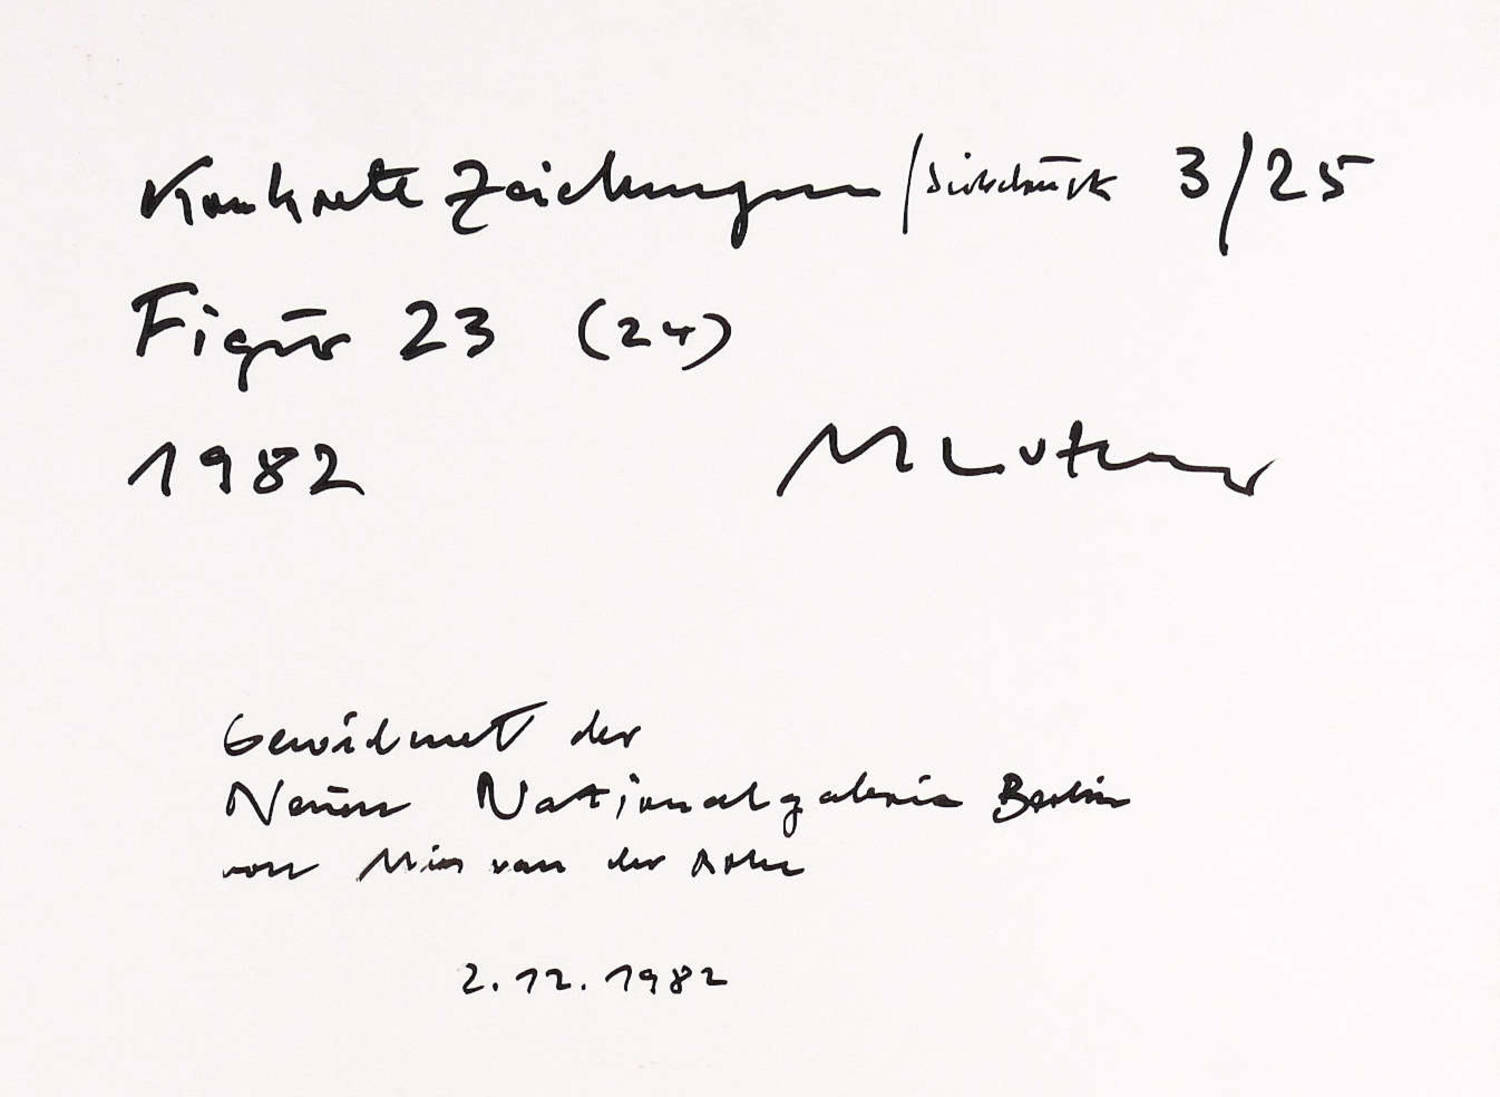 Konkrete Zeichnungen / Siebdruck 3/25
Figur 23 (24)
1982 MLuther
Gewidmet der
Neuen Nationalgalerie Berlin
von Mies van der Rohe
2.12.1982